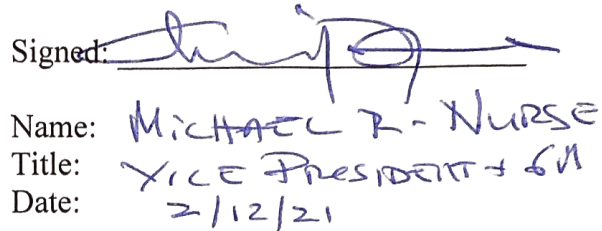 Signed:
Name: MiCHAEL R- NURSE
Title: VICE PRESIDENT + GM
Date: 2/12/21